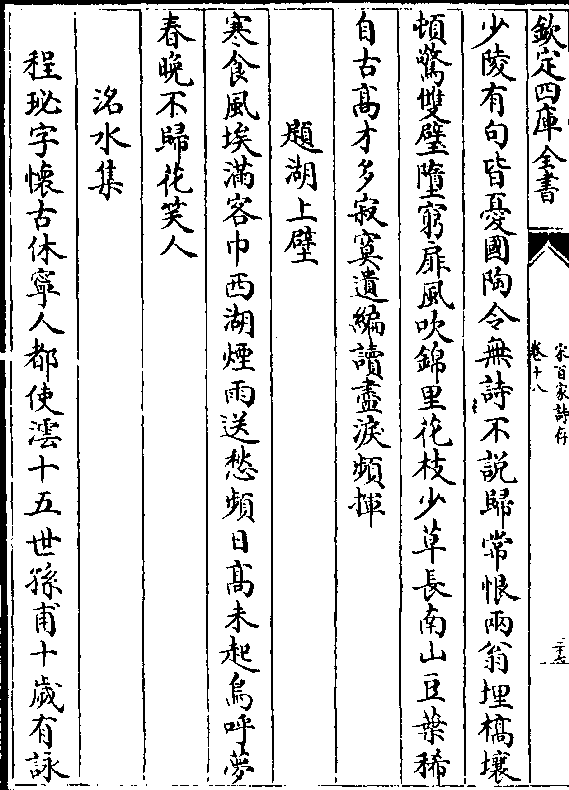 欽定四庫全書
宋百家詩存
卷十八
少陵有句皆憂國陶令無詩不說歸常恨兩翁埋槁壤
頓驚雙璧墮窮扉風吹錦里花枝少草長南山豆葉稀
自古高才多寂寞遺編讀盡淚頻揮
題湖上壁
寒食風埃滿客巾西湖煙雨送愁頻日高未起鳥呼夢
春晚不歸花笑人
洺水集
程珌字懷古休寧人都使澐十五世孫甫十歲有詠